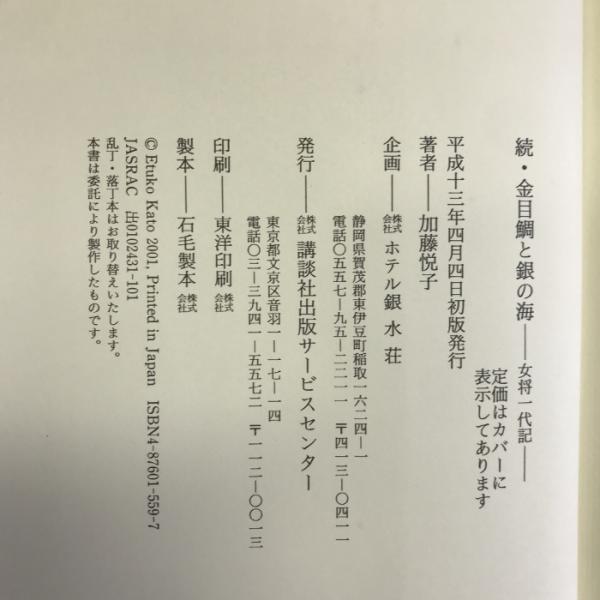 続・金目鯛と銀の海――女将一代記――
定価はカバーに
表示してあります
平成十三年四月四日初版発行
著者――加藤悦子
企画――株式会社 ホテル銀水荘
静岡県賀茂郡東伊豆町稲取一六二四―一
電話〇五五七―九五―二二一一 〒四一三―〇四一一
発行――株式会社 講談社出版サービスセンター
東京都文京区音羽一―一七―一四
電話〇三―三九四一―五五七二 〒一一二―〇〇一三
印刷――東洋印刷株式会社
製本――石毛製本株式会社
© Etuko Kato 2001, Printed in Japan ISBN4-87601-559-7
JASRAC 出0102431-101
乱丁・落丁本はお取り替えいたします。
本書は委託により製作したものです。